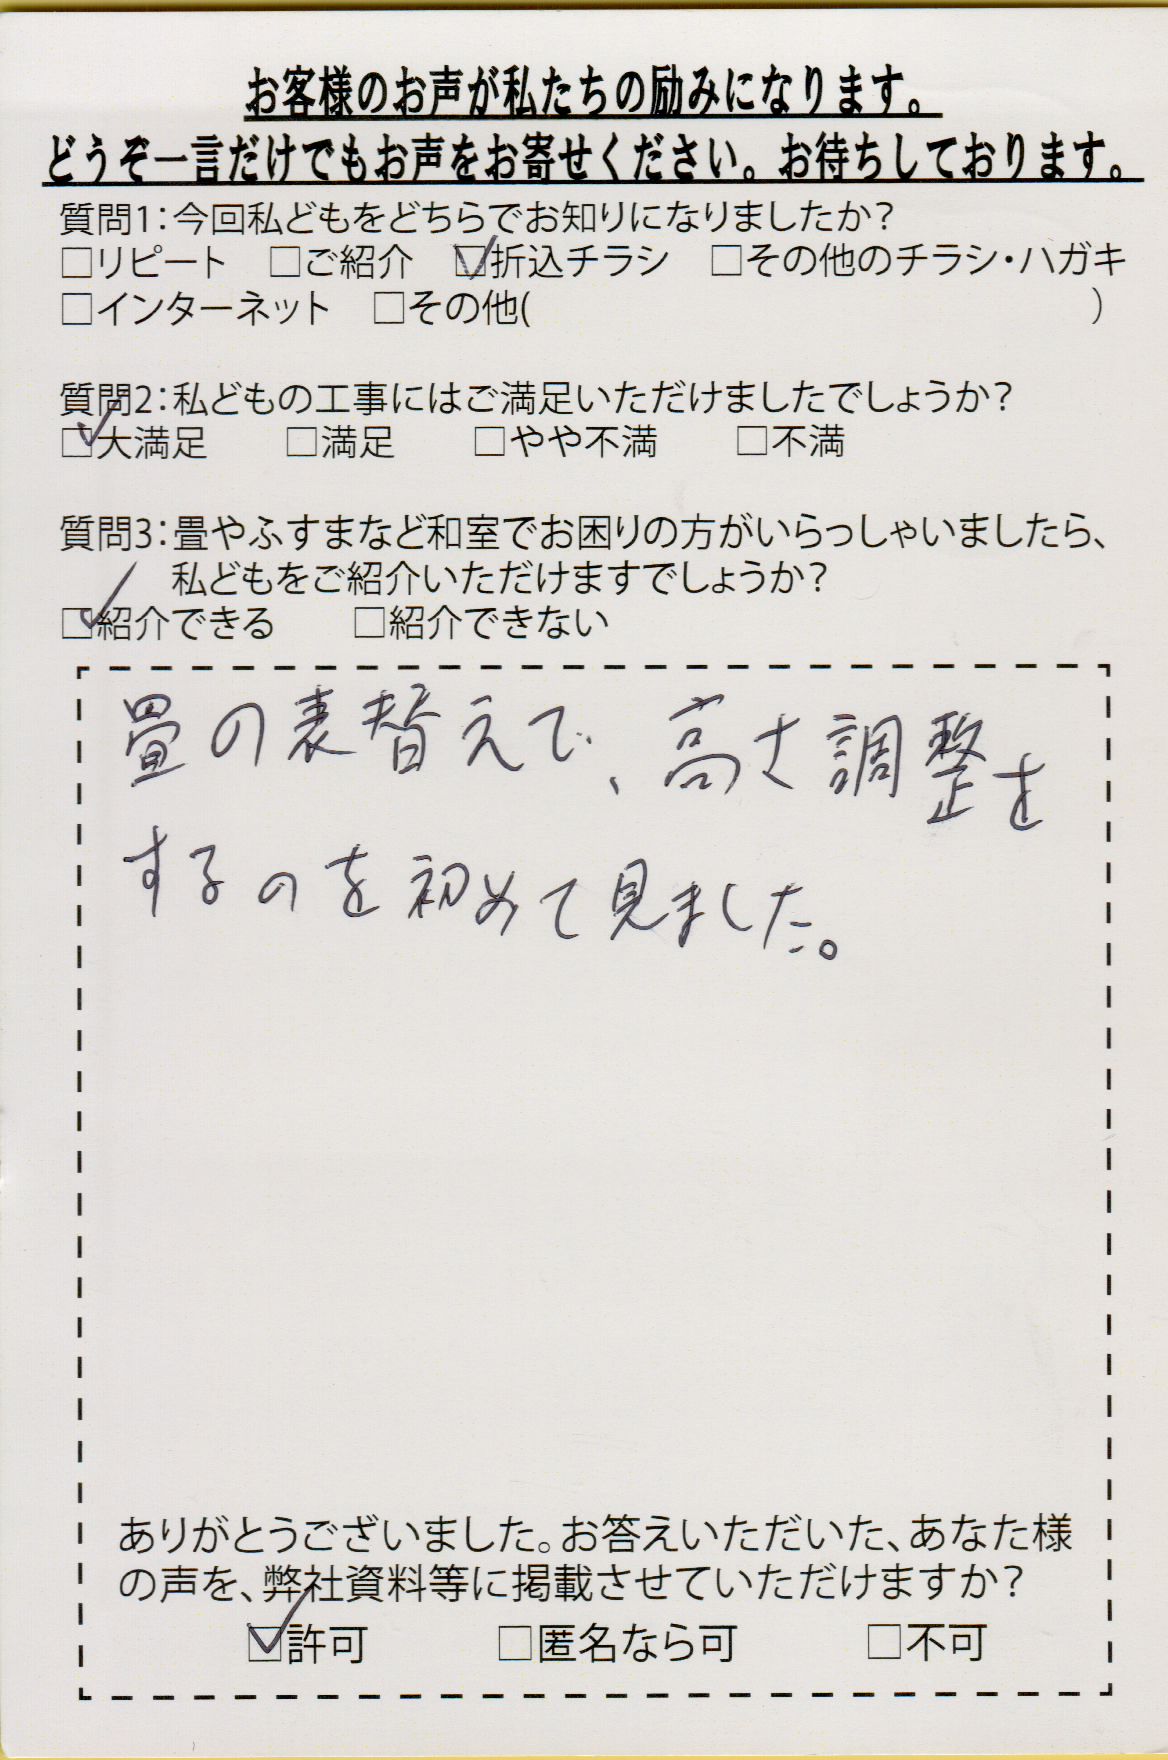 お客様のお声が私たちの励みになります。
どうぞ一言だけでもお声をお寄せください。お待ちしております。
質問1：今回私どもをどちらでお知りになりましたか？
□リピート　□ご紹介　☑折込チラシ　□その他のチラシ・ハガキ
□インターネット　□その他(　　　　　　　　　　　　　　　)
質問2：私どもの工事にはご満足いただけましたでしょうか？
☑大満足　□満足　□やや不満　□不満
質問3：畳やふすまなど和室でお困りの方がいらっしゃいましたら、
私どもをご紹介いただけますでしょうか？
☑紹介できる　□紹介できない
畳の表替えで、高さ調整を
するのを初めて見ました。
ありがとうございました。お答えいただいた、あなた様
の声を、弊社資料等に掲載させていただけますか？
☑許可　□匿名なら可　□不可